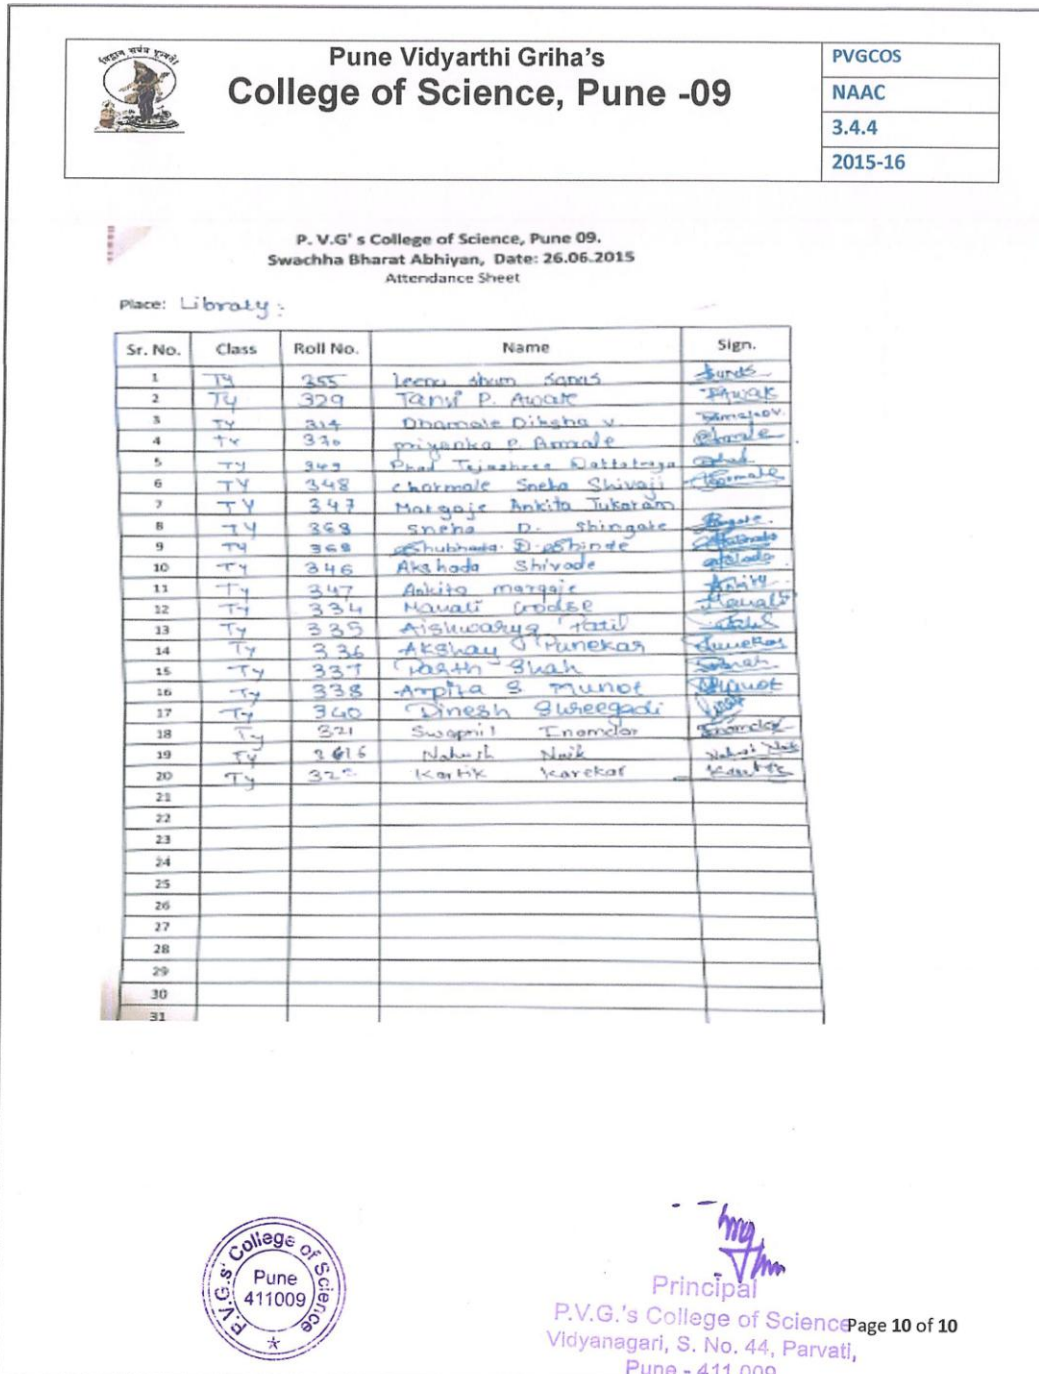 विद्वान् सर्वत्र पूज्यते
Pune Vidyarthi Griha's
College of Science, Pune -09
PVGCOS
NAAC
3.4.4
2015-16
P. V.G' s College of Science, Pune 09.
Swachha Bharat Abhiyan, Date: 26.06.2015
Attendance Sheet
Place: Library:
Sr. No. Class Roll No. Name Sign.
1 TY 355 Leena sham Sanas
2 TY 329 Tanvi P. Aware
3 TY 314 Dhamale Diksha V.
4 TY 370 priyanka P.
5 TY 349 Phad Tejashree Dattatraya
6 TY 348 Chormale Sneha Shivaji
7 TY 347 Margaje Ankita Tukaram
8 TY 368 Sneha D. Shingate
9 TY 368 Shubhada D. Shinde
10 TY 346 Akshada Shivade
11 Ty 347 Ankita margaje Ankita
12 Ty 334 Manali Godse Manali
13 Ty 335 Aishwarya Patil
14 Ty 336 Akshay Punekar Punekar
15 Ty 337 Parth Shah
16 Ty 338 Arpita S Munot Munot
17 Ty 340 Dinesh Shreegadi
18 Ty 321 Swapnil Inamdar Inamdar
19 Ty Nahush Naik Naik
20 Ty Kartik Karekar Kartik
21
22
23
24
25
26
27
28
29
30
31
P.V.G.s' College of Science
Pune
411009
Principal
P.V.G.'s College of Science
Page 10 of 10
Vidyanagari, S. No. 44, Parvati,
Pune - 411 009